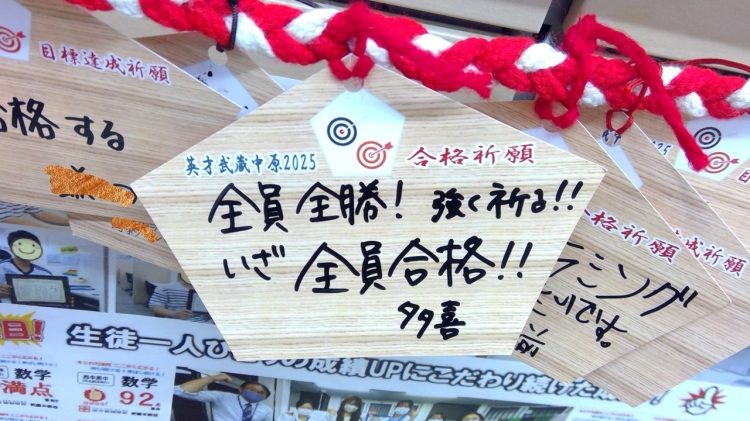 目標達成祈願
合格する
英才武蔵中原2025
合格祈願
全員全勝! 強く祈る!!
いざ 全員合格!!
多喜
2025
合格祈願
合格祈願
ミング
生徒一人ひ
の成績UPにこだわり続けた
数学
満点
数学
92点